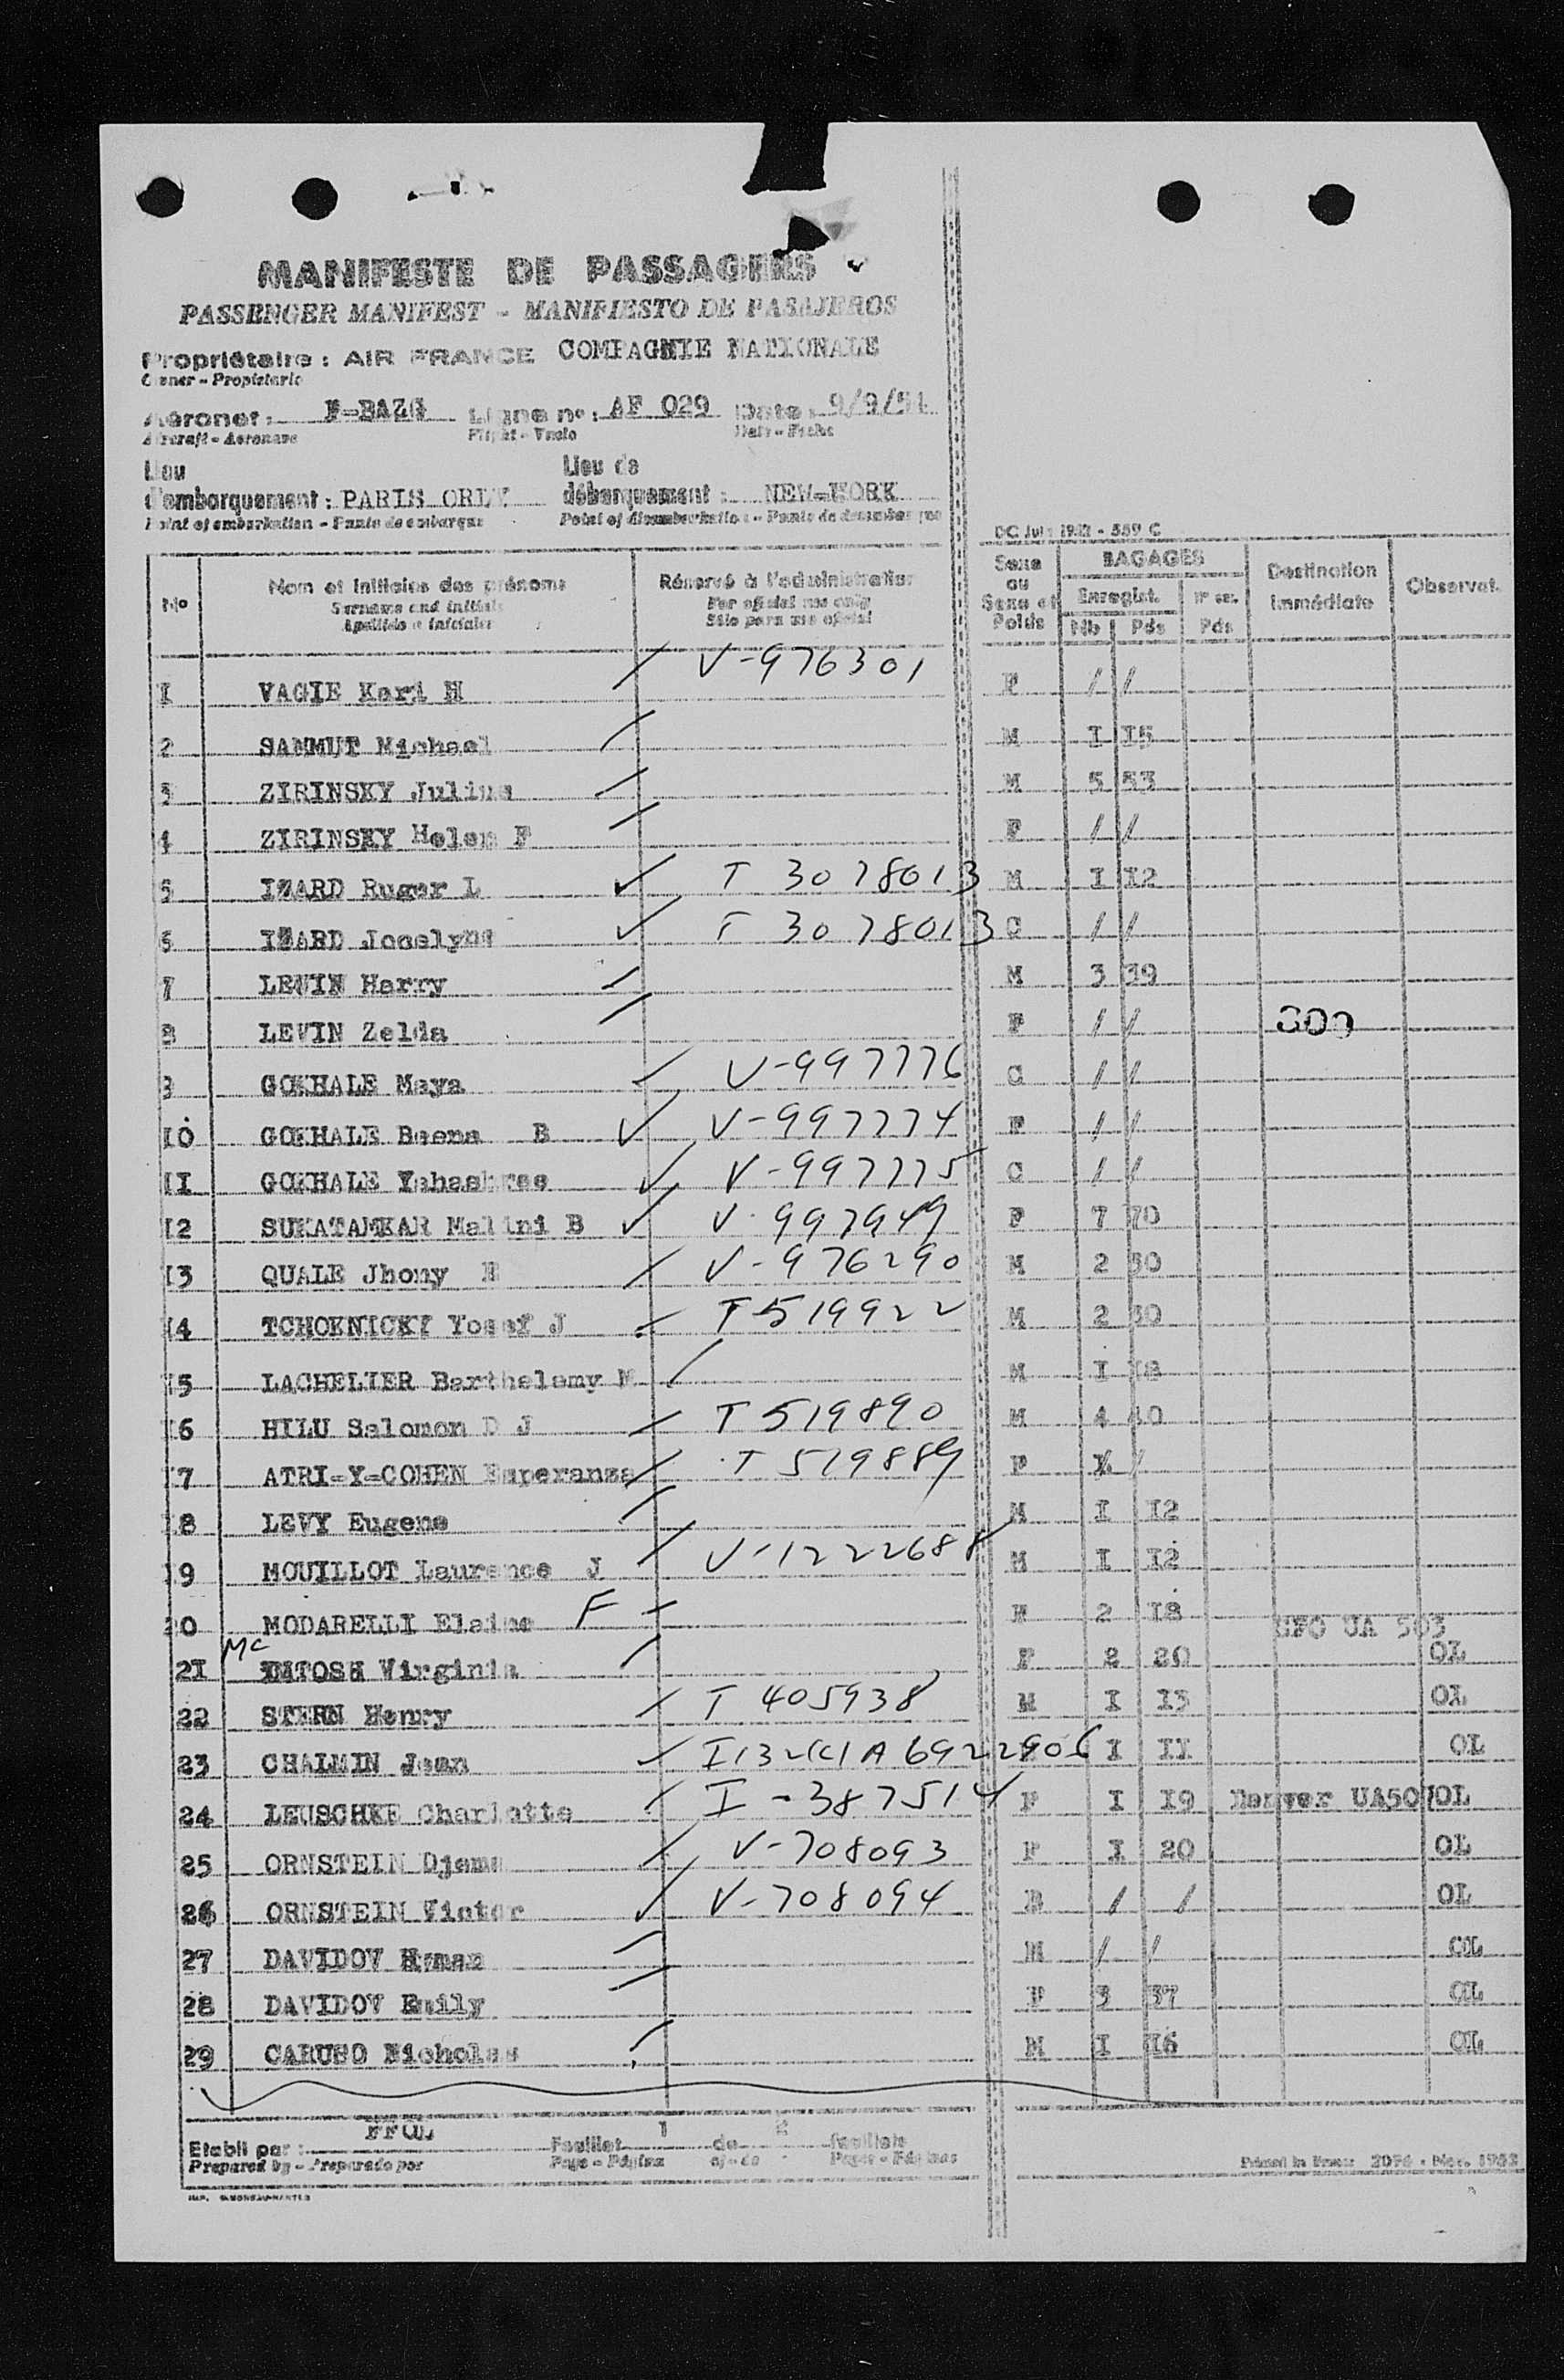 MANIFESTE DE PASSAGERS
PASSENGER MANIFEST - MANIFIESTO DE PASAJEROS
Propriétaire : AIR FRANCE COMPAGNIE NATIONALE
Owner - Propietario
Aéronef : F-BAZG Ligne n° : AF 029 Date : 9/9/51
Aircraft - Aeronave Flight - Vuelo Date - Fecha
Lieu d'embarquement : PARIS ORLY Lieu de débarquement : NEW-YORK
Point of embarkation - Punto de embarque Point of disembarkation - Punto de desembarque
559 C
No Nom et initiales des prénoms Réservé à l'administration Sexe ou Sexe et Poids BAGAGES Destination immédiate Observat.
Surname and initials For official use only Enregist.
Apellido e iniciales Sólo para uso oficial Nb Pds Pds
1 VAGIE Kari H V-976301 F / /
2 SAMMUT Michael M I I5
3 ZIRINSKY Julius M 5 53
4 ZIRINSKY Helen F F / /
5 IZARD Ruger L T 3078013 M I I2
6 IZARD Jocelyne T 3078013 C / /
7 LEVIN Harry M 3 39
8 LEVIN Zelda F / / 300
9 GOKHALE Maya V-997776 C / /
I0 GOKHALE Beena B V-997774 F / /
II GOKHALE V-997775 C / /
I2 SUKATAMKAR Malini B V-997949 F 7 70
I3 QUALE Jhony V-976290 M 2 30
I4 TCHOKNICKI Yosef J T 519922 M 2 30
I5 LACHELIER Barthelemy M M I I8
I6 HILU Salomon D J T 519890 M 4 40
I7 ATRI=Y=COHEN Esperanza T 519889 F /
I8 LEVY Eugene M I I2
I9 MOUILLOT Laurence J V-1222688 M I I2
20 MODARELLI Elaine F 2 I8 UA 503
2I Mc INTOSH Virginia F 2 20 OL
22 STERN Henry T 405938 M I I3 OL
23 CHALMIN Jean I132(c)A 6922906 I II OL
24 LEUSCHKE Charlotte I-387514 F I I9 Denver UA507 OL
25 ORNSTEIN V-708093 F I 20 OL
26 ORNSTEIN Victor V-708094 / / OL
27 DAVIDOV Hyman M / / OL
28 DAVIDOV Emily F 3 37 OL
29 CARUSO Nicholas M I I6 OL
Etabli par : FFOL Feuillet 1 de 2 feuillets
Prepared by - Preparado por Page - Página of - de Pages - Páginas
Printed in France 1952